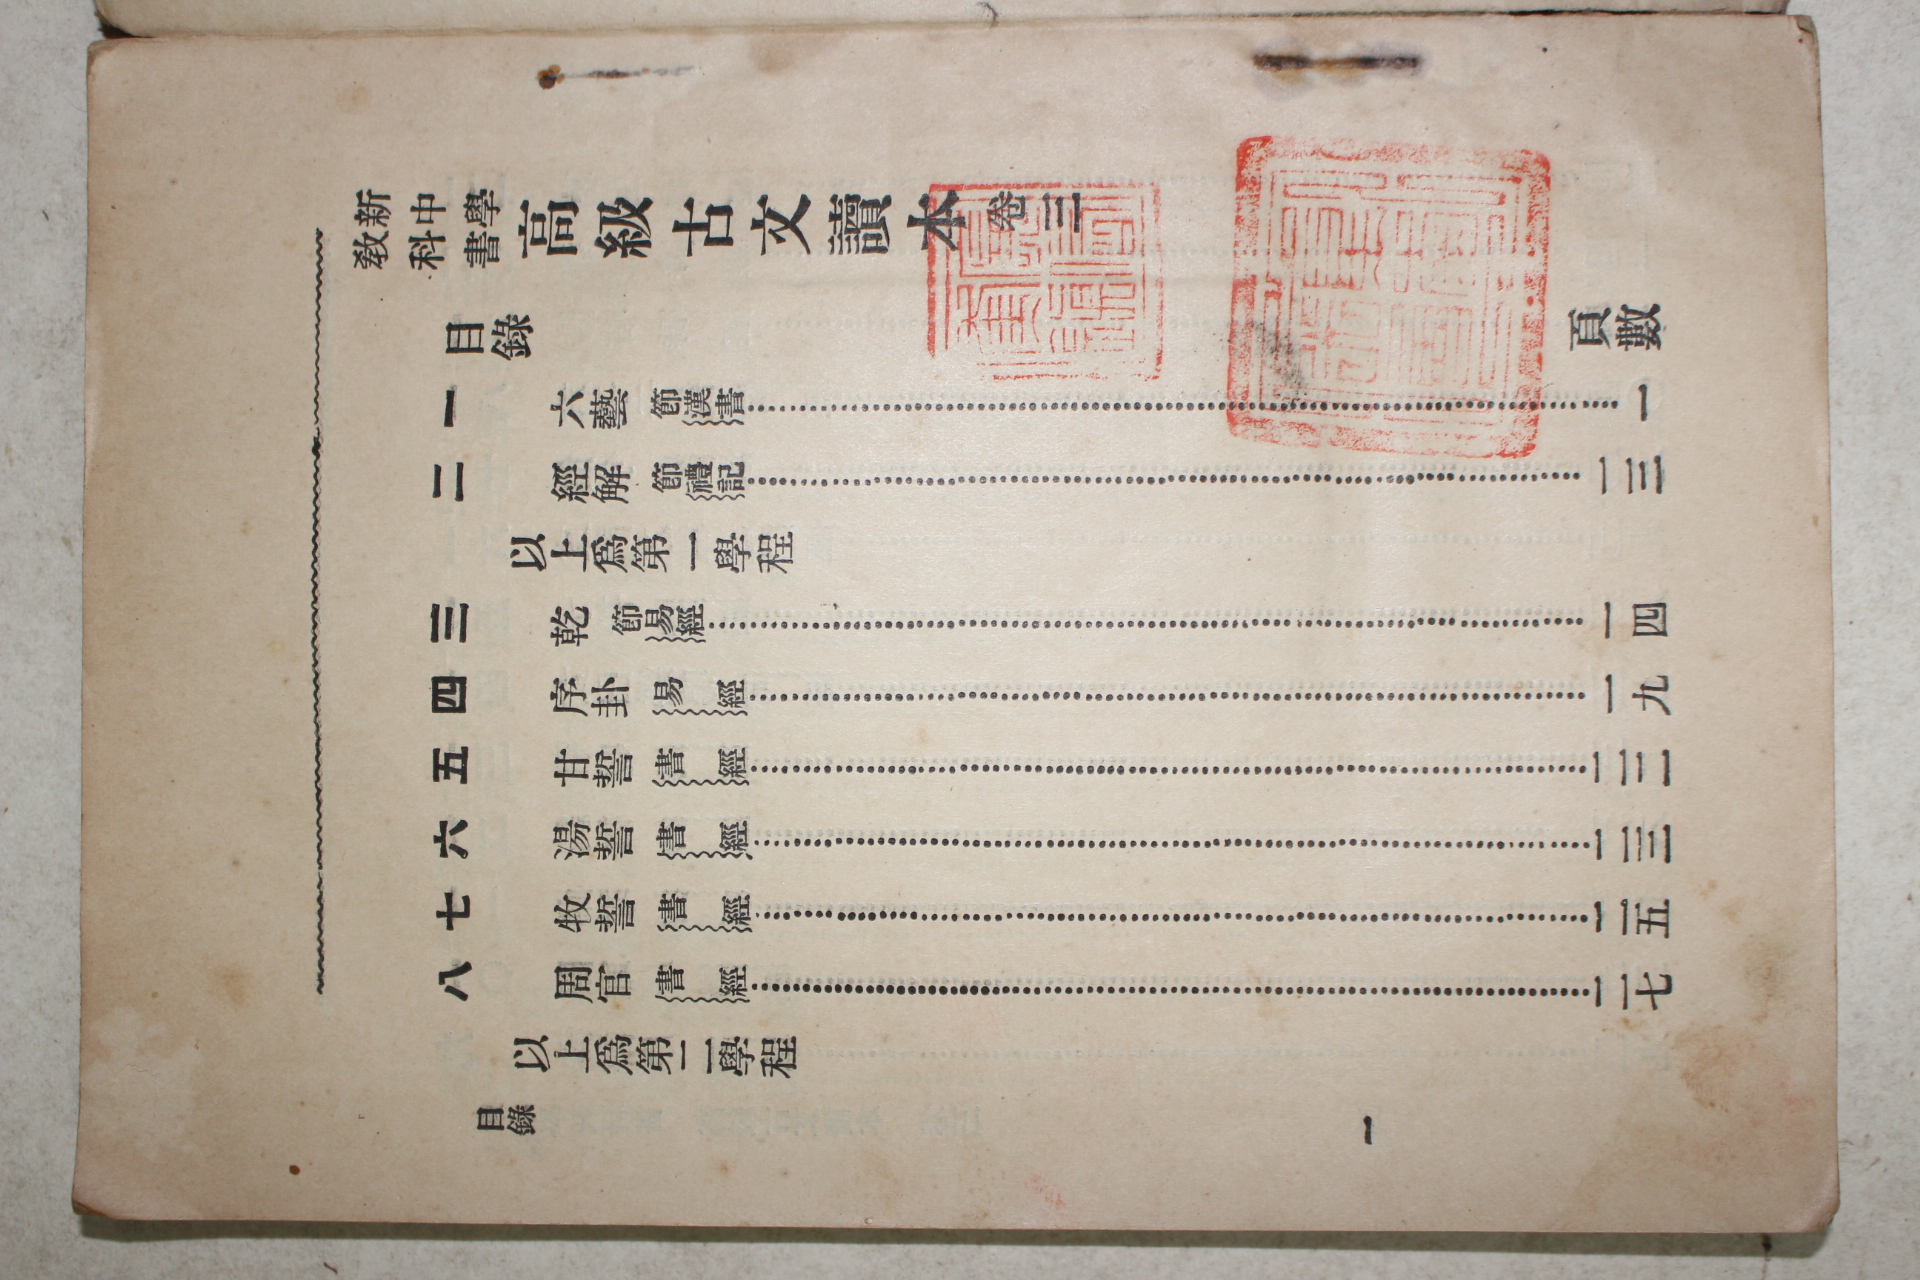 新中學教科書 高級古文讀本 卷三
目錄 頁數
一 六藝 節漢書 一
二 經解 節禮記 一三
以上爲第一學程
三 乾 節易經 一四
四 序卦 易經 一九
五 甘誓 書經 二二
六 湯誓 書經 二三
七 牧誓 書經 二五
八 周官 書經 二七
以上爲第二學程
目錄 一